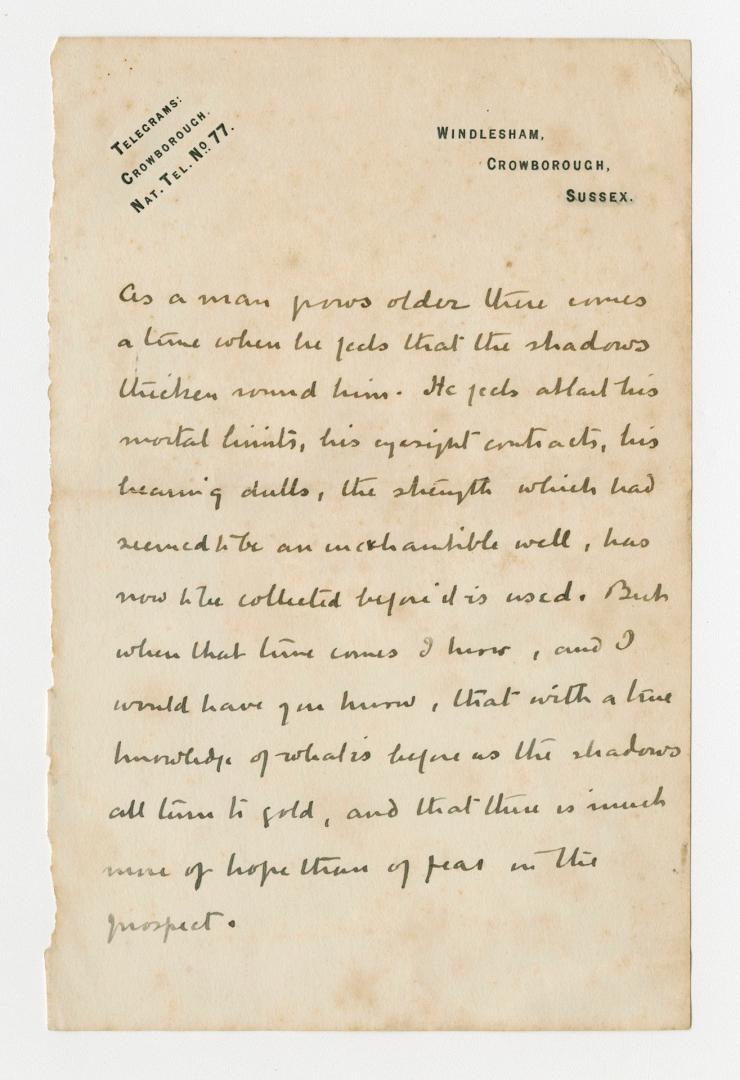 TELEGRAMS:
CROWBOROUGH.
NAT. TEL. NO. 77.
WINDLESHAM,
CROWBOROUGH,
SUSSEX.
As a man grows older there comes
a time when he feels that the shadows
thicken round him. He feels at last his
mortal limits, his eyesight contracts, his
hearing dulls, the strength which had
seemed to be an inexhaustible well, has
now to be collected before it is used. But
when that time comes I know, and I
would have you know, that with a true
knowledge of what is before us the shadows
all turn to gold, and that there is much
more of hope than of fear in the
prospect.